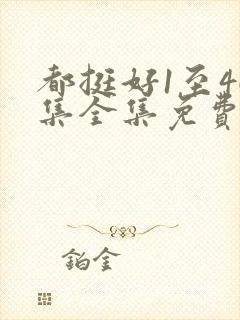 都挺好1至4
集全集免费
铂金